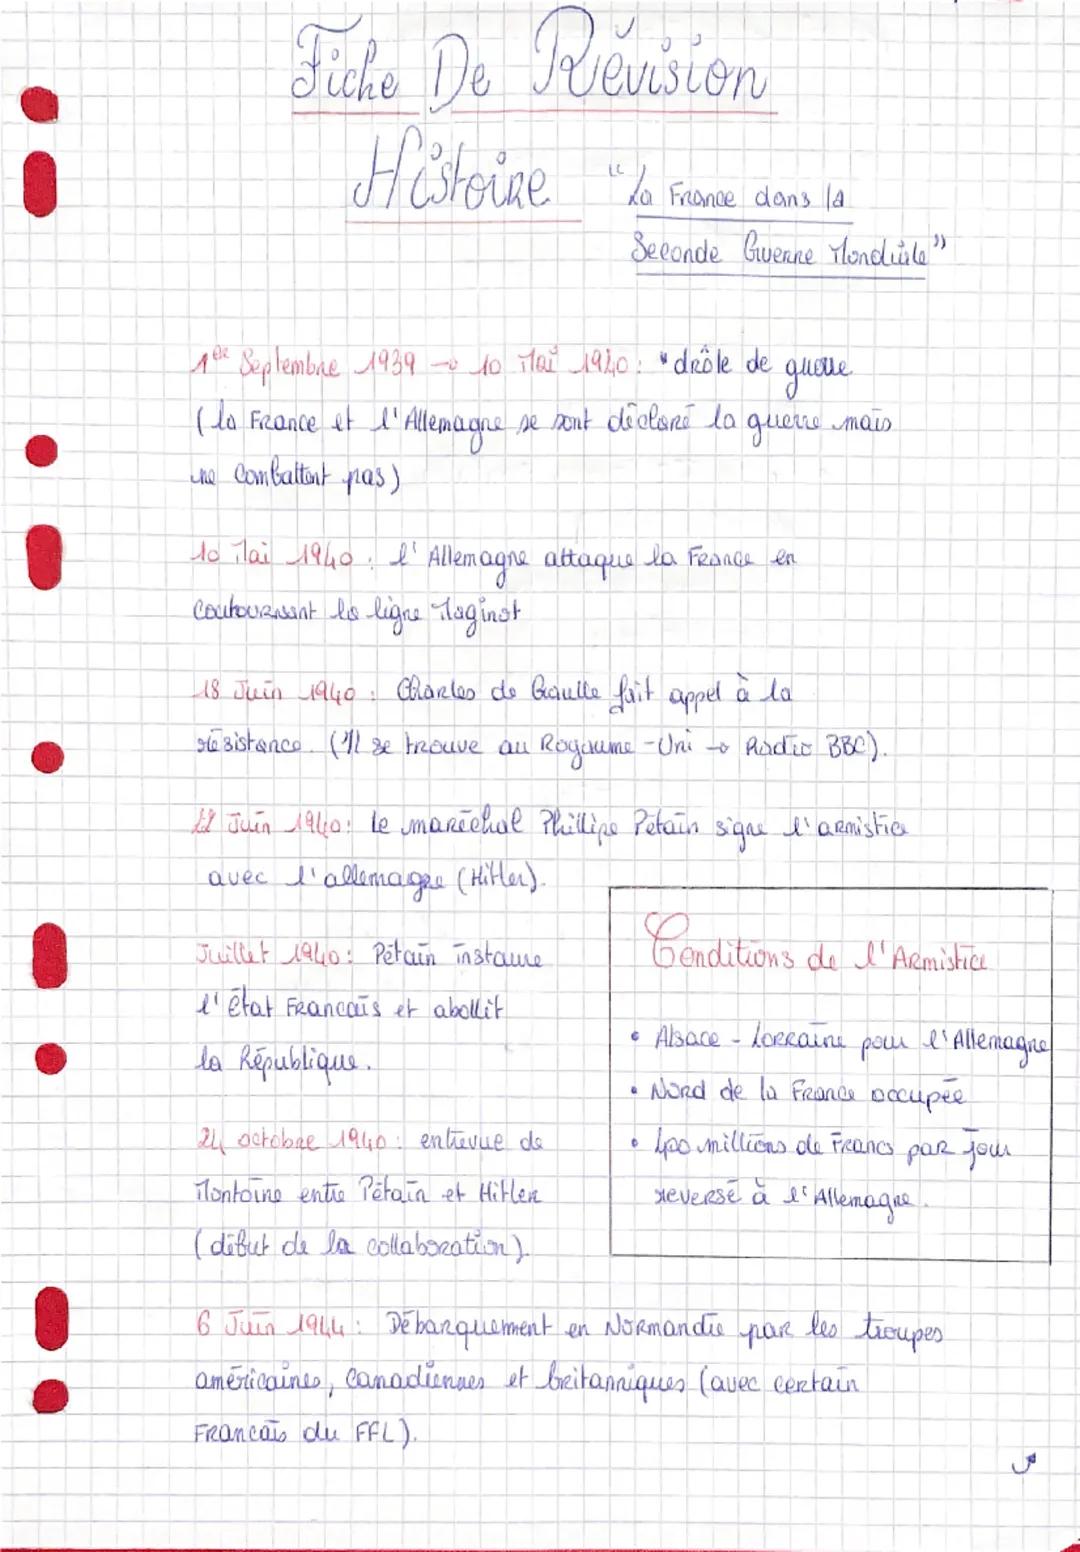 Fiche De Révision
Histoire "La France dans la
Seconde Guerre Mondiale"
1er Septembre 1939 → 10 Mai 1940 : "drôle de guerre
(la France et l'Allemagne se sont déclaré la guerre mais
ne combattent pas)
10 Mai 1940 : l'Allemagne attaque la France en
la ligne Maginot
18 Juin 1940 : Charles de Gaulle fait appel à la
résistance. (Il se trouve au Royaume-Uni → Radio BBC).
22 Juin 1940 : le maréchal Phillipe Pétain signe l'armistice
avec l'allemagne (Hitler).
Juillet 1940 : Pétain instaure
l'état Francais et abollit
la République.
24 octobre 1940 : entrevue de
Montoire entre Pétain et Hitler
(début de la collaboration).
Conditions de l'Armistice
• Alsace - Lorraine pour l'Allemagne
• Nord de la France occupée
• 400 millions de Francs par jour
reversé à l'Allemagne.
6 Juin 1944 : Débarquement en Normandie par les troupes
américaines, Canadiennes et britanniques (avec certain
Francais du FFL).